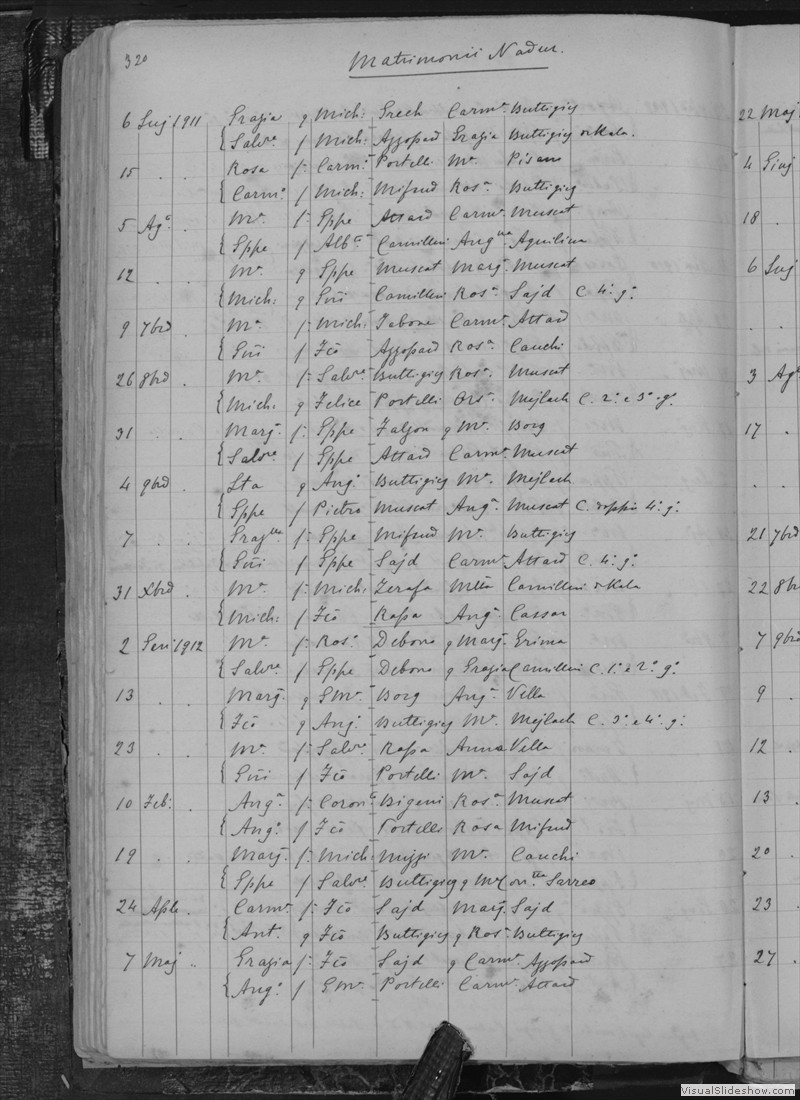 320
Matrimonii Nadur.
6 Luj 1911 Grazia q Mich: Grech Carmᵃ Buttigieg
{ Salvʳᵉ f Mich: Azzopard Grazia Buttigieg
15 . . Rosa f: Carmᵒ Portelli Mᵃ Pisani
{ Carmᵒ f Mich: Mifsud Rosᵃ Buttigieg
5 Agᵒ . Mᵃ f: Gppe Attard Carmᵃ Muscat
{ Gppe f Camilleri Aquilina
12 . . Mᵃ q Gppe Muscat Marⱼ Muscat
{ Mich: q Gni Camilleri Rosᵃ Sajd C. 4ᵒ gᵒ
9 7brē . Mᵃ f: Mich: Tabone Carmᵃ Attard
{ Gni f Fcō Azzopard Rosᵃ Cauchi
26 8brē . Mᵃ f: Salvʳᵉ Buttigieg Rosᵃ Muscat
{ Mich: q Felice Portelli Orsᵃ Mejlach C. 2ᵒ e 3ᵒ gᵒ
31 . . Marⱼ f: Gppe Falzon q Mᵃ Borg
{ Salvʳᵉ f Gppe Attard Carmᵃ Muscat
4 9brē . q Angᵒ Buttigieg Mᵃ Mejlach
{ Gppe f Pietro Muscat Angᵃ Muscat C. doppio 4ᵒ gᵒ
7 . . f: Gppe Mifsud Mᵃ Buttigieg
{ Gni f Gppe Sajd Carmᵃ Attard C. 4ᵒ gᵒ
31 Xbrē . Mᵃ f: Mich: Zerafa Camilleri
{ Mich: f Fcō Rapa Angᵃ Cassar
2 Gen 1912 Mᵃ f: Rosᵒ Debono q Marⱼ Grima
{ Salvʳᵉ f Gppe Debono q Grazia Camilleri C. 1ᵒ e 2ᵒ gᵒ
13 . . Marⱼ q GMᵃ Borg Angᵃ Vella
{ Fcō q Angᵒ Buttigieg Mᵃ Mejlach C. 3ᵒ e 4ᵒ gᵒ
23 . . Mᵃ f: Salvʳᵉ Rapa Anna Vella
{ Gni f Fcō Portelli Mᵃ Sajd
10 Feb: . Angᵃ f: Bigeni Rosᵃ Muscat
{ Angᵒ f Fcō Portelli Rosa Mifsud
19 . . Marⱼ f: Mich: Mizzi Mᵃ Cauchi
{ Gppe f Salvʳᵉ Buttigieg q Sarreo
24 Aple . Carmᵃ f: Fcō Sajd Marⱼ Sajd
{ Ant. q Fcō Buttigieg q Rosᵃ Buttigieg
7 Maj . Grazia f: Fcō Sajd q Carmᵃ Azzopard
{ Angᵒ f GMᵃ Portelli Carmᵃ Attard
22 Maj
4 Giuj
18 .
6 Luj
3 Agᵒ
17 .
21 7brē
22 8br
7 9brē
9 .
12 .
13 .
20 .
23 .
27 .
VisualSlideshow.com